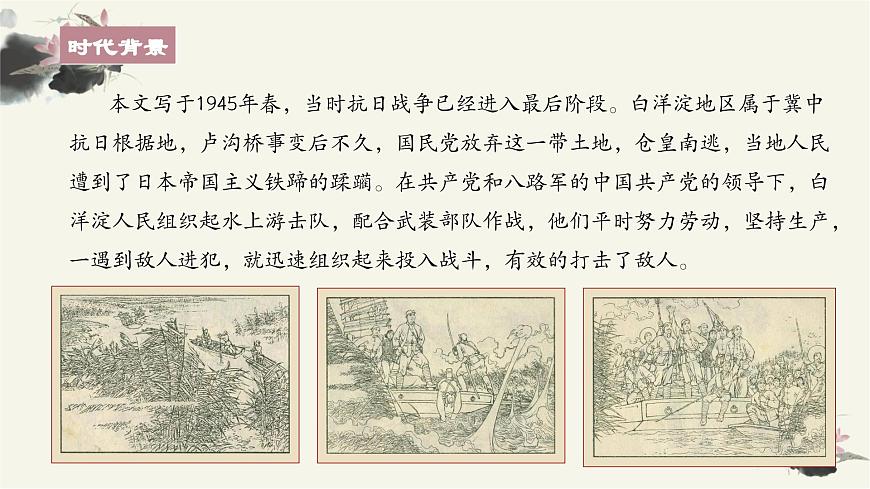 时代背景
本文写于1945年春，当时抗日战争已经进入最后阶段。白洋淀地区属于冀中
抗日根据地，卢沟桥事变后不久，国民党放弃这一带土地，仓皇南逃，当地人民
遭到了日本帝国主义铁蹄的蹂躏。在共产党和八路军的中国共产党的领导下，白
洋淀人民组织起水上游击队，配合武装部队作战，他们平时努力劳动，坚持生产，
一遇到敌人进犯，就迅速组织起来投入战斗，有效的打击了敌人。